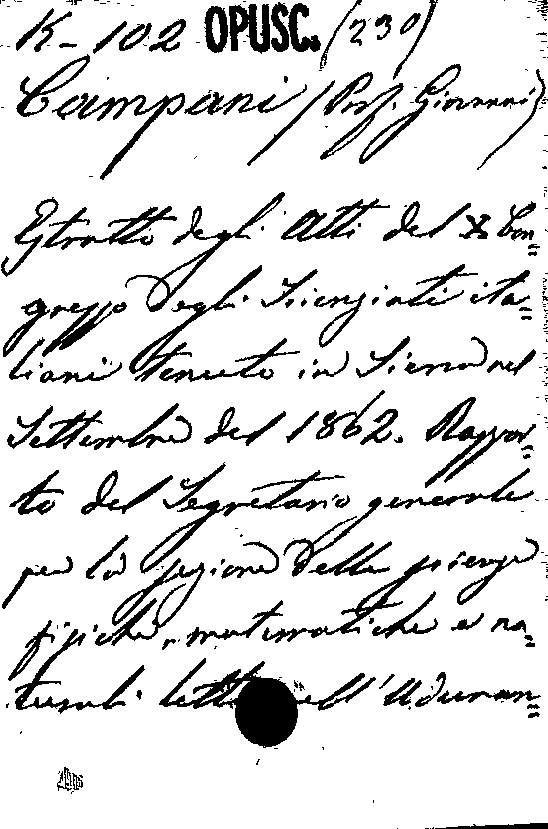 K-102 OPUSC. (230)
Campani (Prof. Giovanni)
Estratto degli Atti del X Con=
gresso degli Scienziati ita=
liani tenuto in Siena nel
Settembre del 1862. Rappor=
to del Segretario generale
per la sezione delle scienze
fisiche, matematiche e na=
turali letto nell'Adunan=